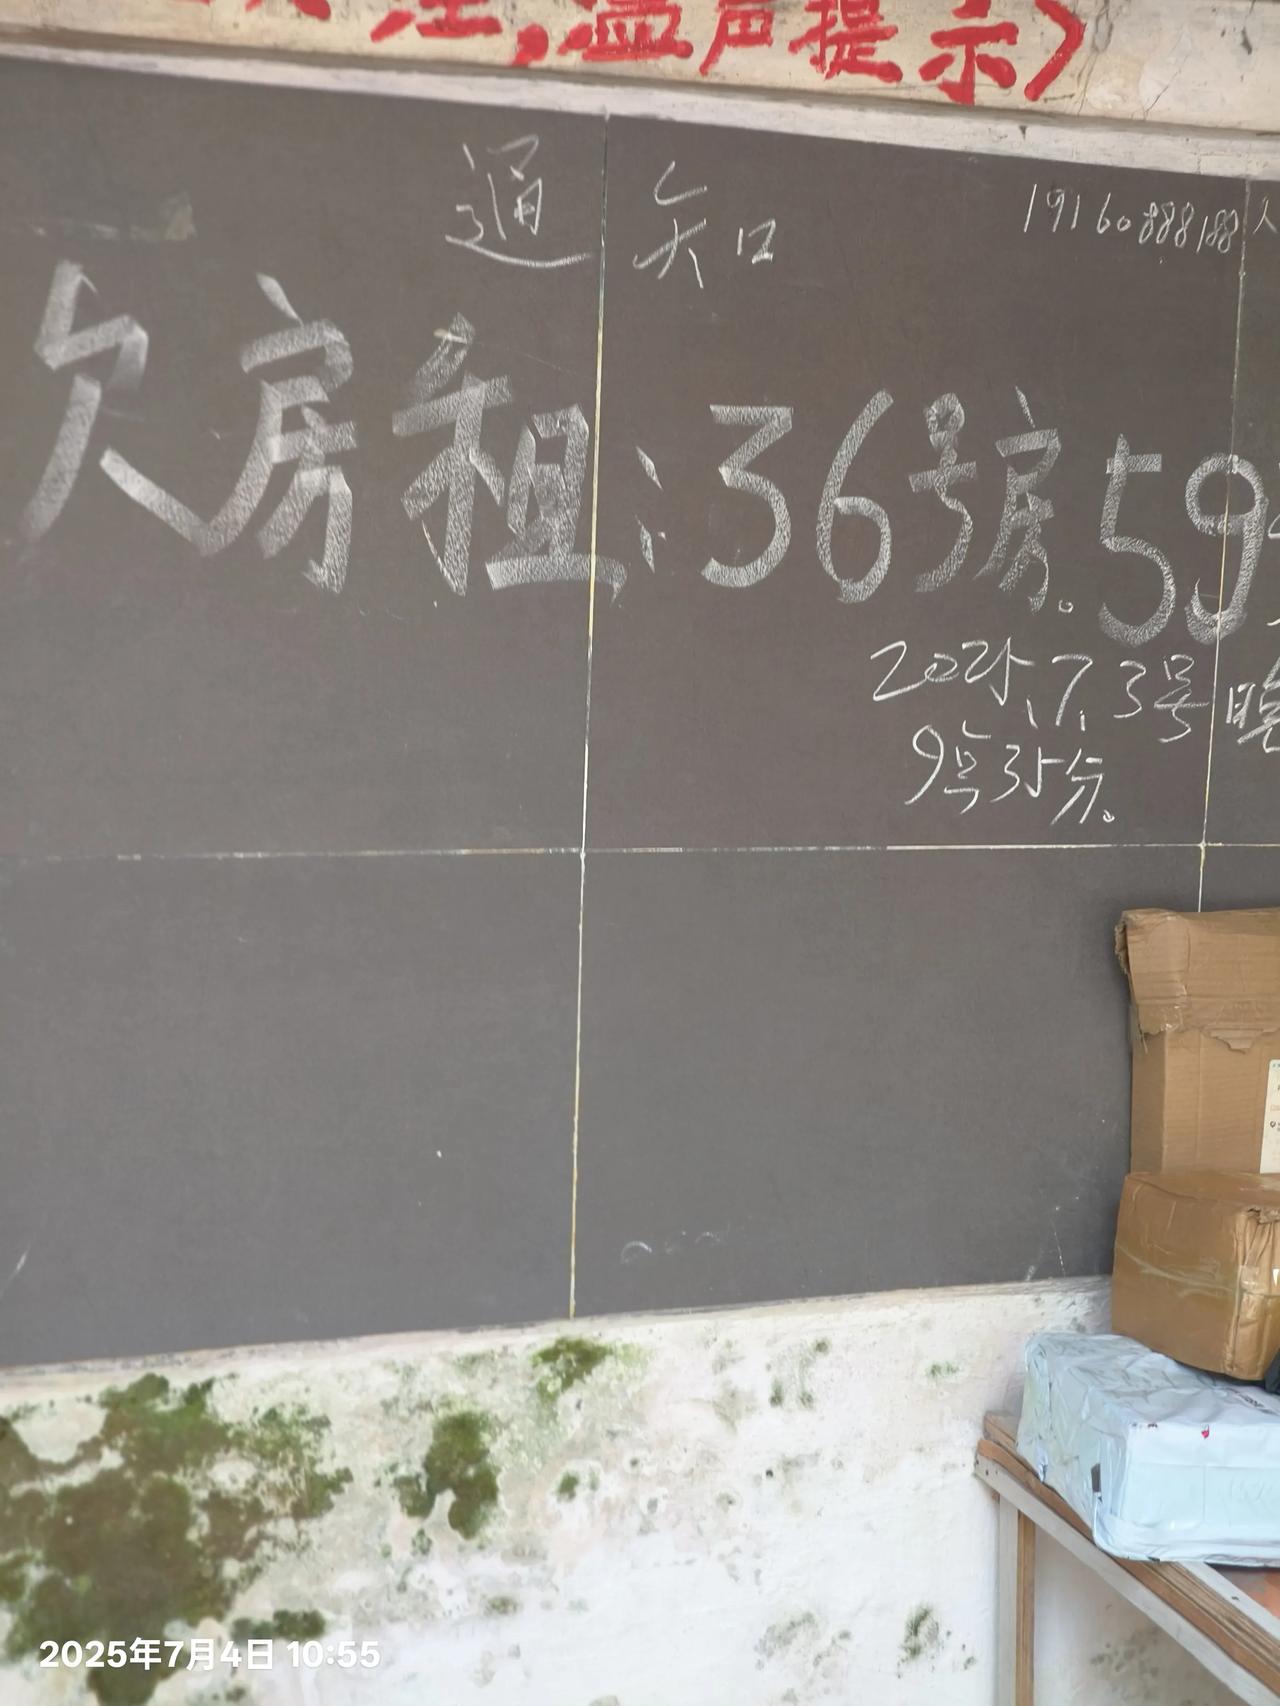 温声提示〉
通知
19160888188
欠房租:36号房。59
2025.7.3号晚
9号35分。
2025年7月4日 10:55